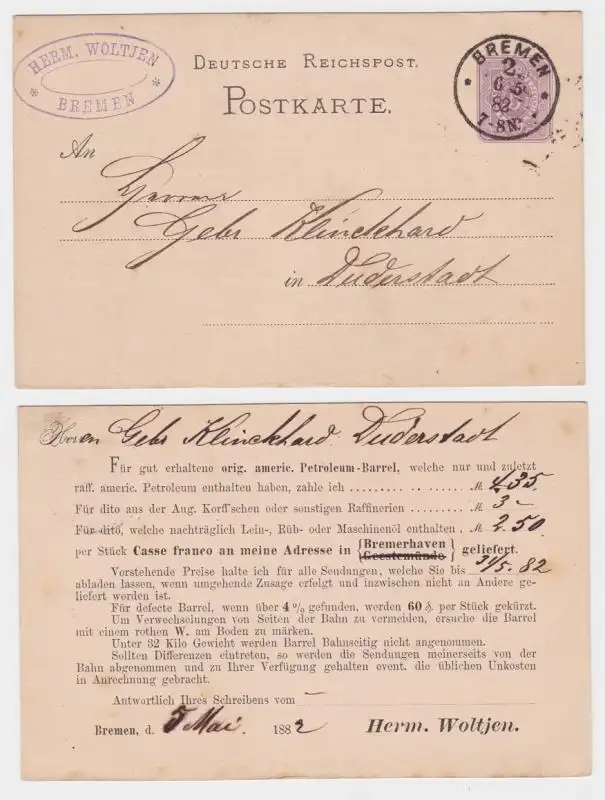 HERM. WOLTJEN
* BREMEN *
DEUTSCHE REICHSPOST.
POSTKARTE.
BREMEN
2.
6 5
82
7-8N.
An
Herren
Gebr Klinckhard
in Duderstadt
Herren Gebr Klinckhard Duderstadt
Für gut erhaltene orig. americ. Petroleum-Barrel, welche nur und zuletzt
raff. americ. Petroleum enthalten haben, zahle ich .......... M. 4.35.
Für dito aus der Aug. Korff'schen oder sonstigen Raffinerien . M. 3 –
Für dito, welche nachträglich Lein-, Rüb- oder Maschinenöl enthalten . M. 2.50.
per Stück Casse franco an meine Adresse in {Bremerhaven Geestemünde} geliefert.
Vorstehende Preise halte ich für alle Sendungen, welche Sie bis 31/5. 82
abladen lassen, wenn umgehende Zusage erfolgt und inzwischen nicht an Andere ge-
liefert worden ist.
Für defecte Barrel, wenn über 4 % gefunden, werden 60 ₰. per Stück gekürzt.
Um Verwechselungen von Seiten der Bahn zu vermeiden, ersuche die Barrel
mit einem rothen W. am Boden zu märken.
Unter 32 Kilo Gewicht werden Barrel Bahnseitig nicht angenommen.
Sollten Differenzen eintreten, so werden die Sendungen meinerseits von der
Bahn abgenommen und zu Ihrer Verfügung gehalten event. die üblichen Unkosten
in Anrechnung gebracht.
Antwortlich Ihres Schreibens vom –
Bremen, d. 5 Mai. 1882 Herm. Woltjen.